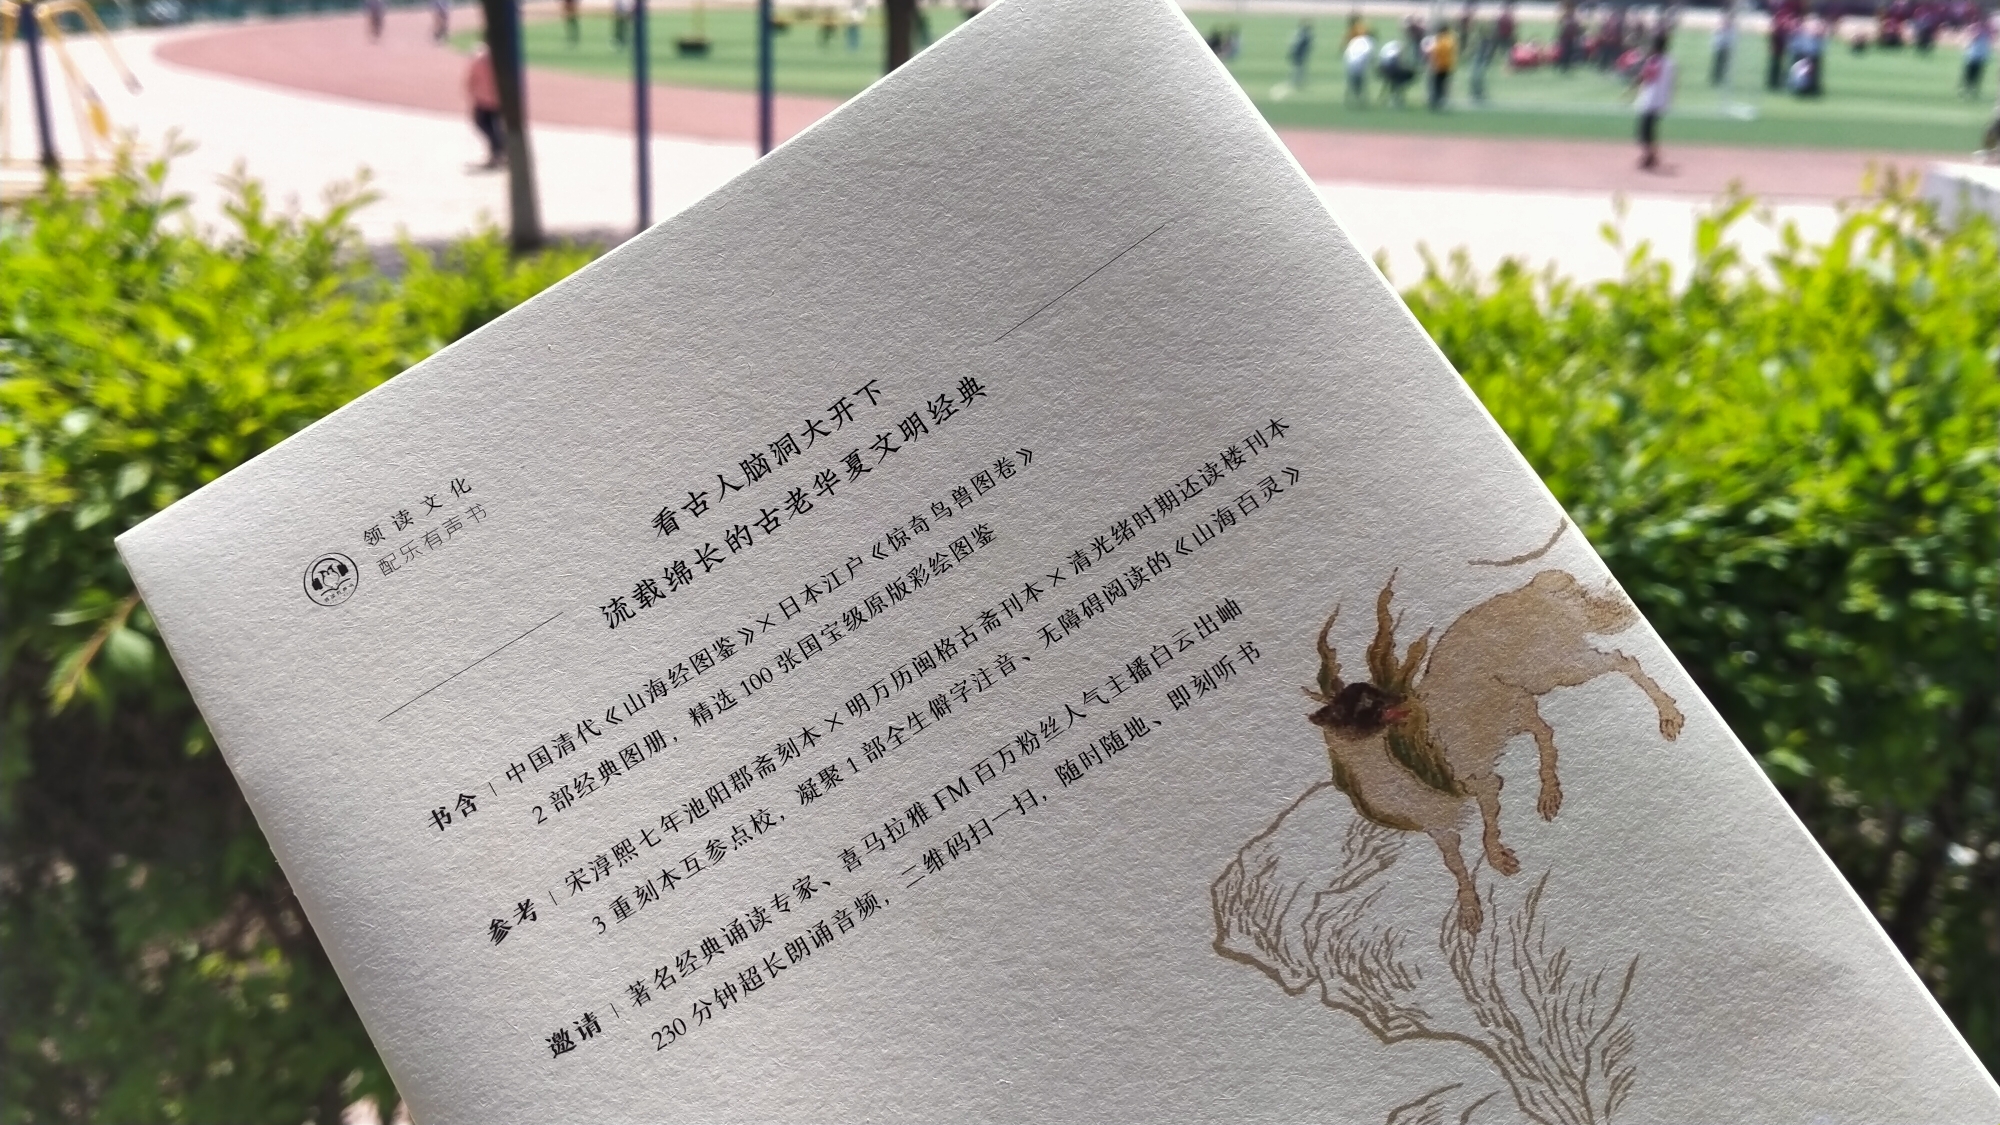 领读文化
配乐有声书
看古人脑洞大开下
流载绵长的古老华夏文明经典
书含 | 中国清代《山海经图鉴》×日本江户《惊奇鸟兽图卷》
2部经典图册，精选100张国宝级原版彩绘图鉴
参考 | 宋淳熙七年池阳郡斋刻本×明万历闽格古斋刊本×清光绪时期还读楼刊本
3重刻本互参点校，凝聚1部全生僻字注音、无障碍阅读的《山海百灵》
邀请 | 著名经典诵读专家、喜马拉雅FM百万粉丝人气主播白云出岫
230分钟超长朗诵音频，二维码扫一扫，随时随地、即刻听书